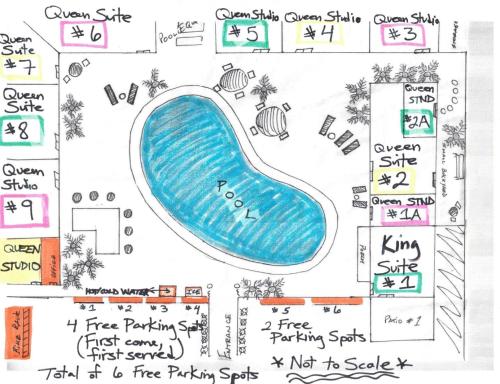 Queen Suite
#6
Pool
Queen Studio
#5
Queen Studio
#4
Queen Studio
#3
Queen
Suite
#7
Queen
Suite
#8
Queen
Studio
#9
QUEEN
STUDIO
OFFICE
Queen
STND
#2A
Queen
Suite
#2
Queen STND
#1A
SMALL BACKYARD
King
Suite
#1
PORCH
Patio #1
POOL
HOT/COLD WATER
ICE
#1 #2 #3 #4
#5 #6
ENTRANCE
4 Free Parking Spots
(First come,
first served)
2 Free
Parking Spots
Total of 6 Free Parking Spots
* Not to Scale *